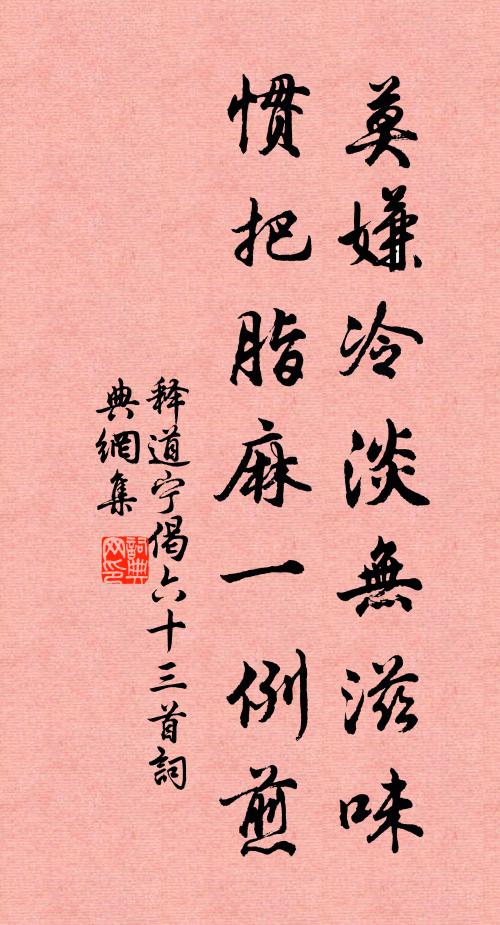 莫嫌冷淡無滋味
慣把脂麻一例煎
释道宁偈六十三首詞
典網集
詞典
网印